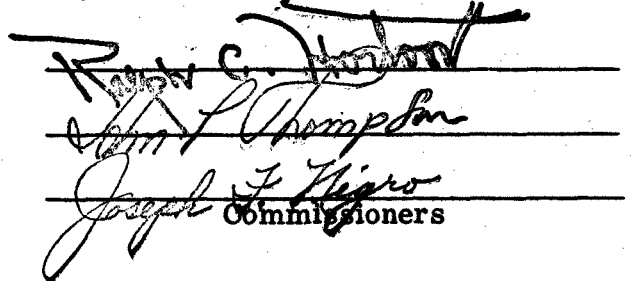 Ralph C.
John P Thompson
Joseph F. Nigro
Commissioners